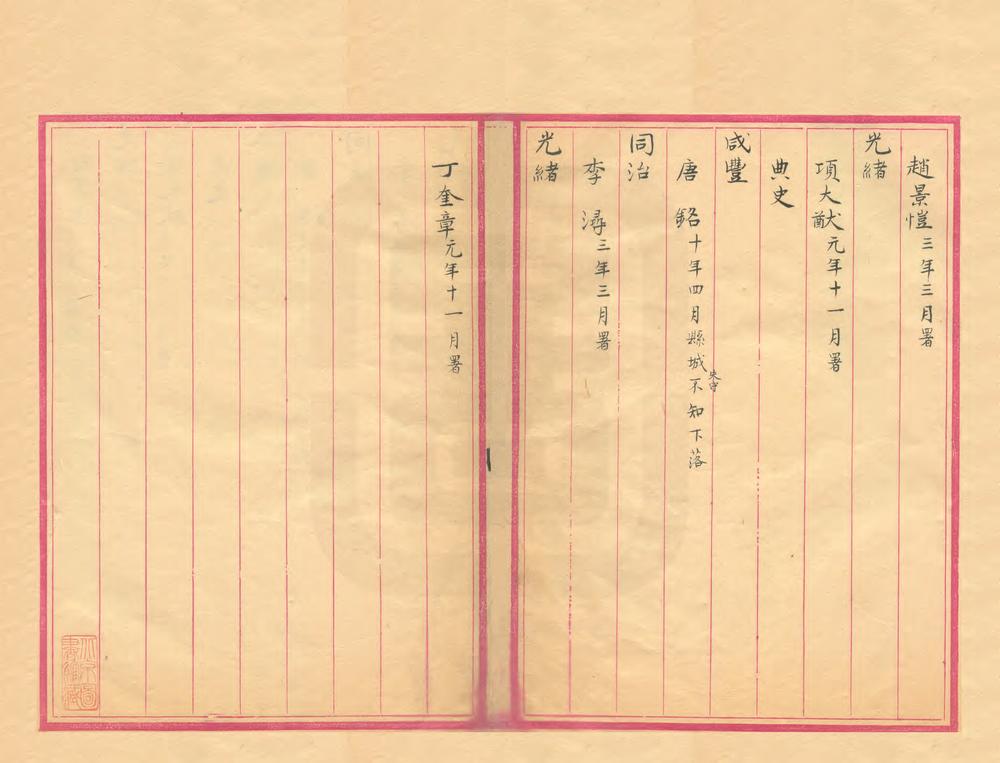 趙景愷三年三月署
光緒
項大猷元年十一月署
典史
咸豐
唐 銘十年四月縣城失守不知下落
同治
李 潯三年三月署
光緒
丁奎章元年十一月署
北京圖
書館藏